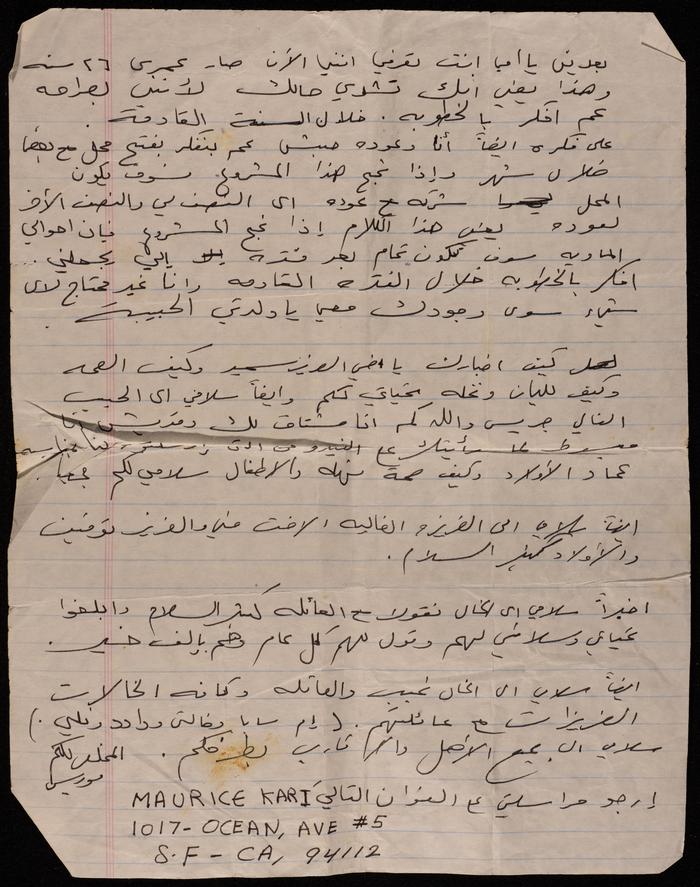 بعدين يا أمي انت تعرفي انني الأن صار عمري ٢٦ سنه
وهذا يعني انك تشدي حالك لأنني بصراحه
عم افكر بالخطوبه . خلال السنة القادمة .
على فكره ايضاً أنا وعوده حبش عم بنفكر بفتح محل مع بعضنا
خلال شهر وإذا نجح هذا المشروع سوف يكون
المحل شركه مع عوده اي النصف لي والنصف الأخر
لعوده يعني هذا الكلام إذا نجح المشروع فإن احوالي
الماديه سوف تكون تمام بعد فتره يلي يجعلني ..
افكر بالخطوبه خلال الفتره القادمه وانا غير محتاج لأي
شيء سوى وجودك معي يا ولدتي الحبيبة .
كيف اخبارك يا اخي العزيز سمير وكيف الصحه
وكيف لليان ونخله تحياتي لكم وايضاً سلامي الى الحبيب
الغالي جريس والله كم انا مشتاق لك وقديش انا
مبسوط لما رأيتك ع الفيديو
عماد الأولاد وكيف صحة نهله والاطفال سلامي لكم جميعاً .
ايضاً سلامي الى العزيزه الغاليه الاخت مني والعزيز توفيق
والأولاد كثير السلام .
اخيراً سلامي الى الخال نقولا مع العائله كثير السلام وابلغوا
تحياتي وسلامي لهم وتقول لهم كل عام وهم بإلف خير .
ايضاً سلامي الى الخال نجيب والعائله وكافه الخالات
العزيزات مع عائلتهم . ( إم سابا وخالتي وداد ونلي . )
سلامي الى جميع الأهل والأقارب بطرفكم . المخلص لكم
موريس
إرجو مراسلتي ع العنوان التالي MAURICE KARI
1017- OCEAN, AVE #5
S.F - CA, 94112